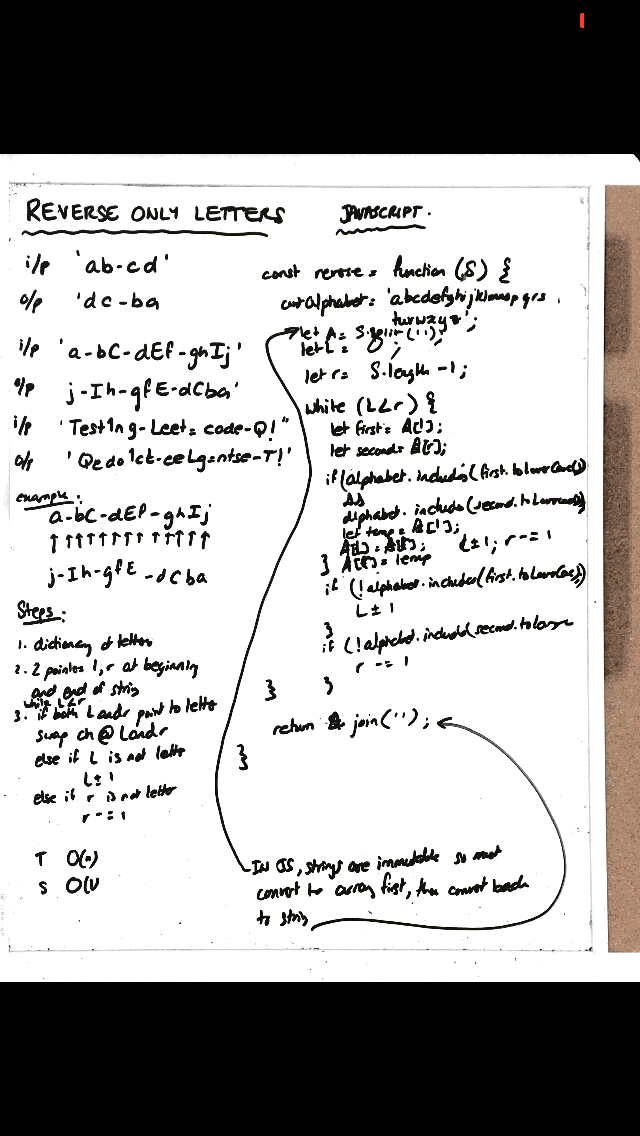 REVERSE ONLY LETTERS
i/p 'ab-cd'
o/p 'dc-ba
i/p 'a-bC-dEf-ghIj'
o/p j-Ih-gfE-dCba'
i/p 'Test1ng-Leet=code-Q!"
o/p 'Qedo1ct-eeLg=ntse-T!'
example:
a-bC-dEf-ghIj
↑↑↑↑↑↑↑↑↑↑↑↑↑
j-Ih-gfE-dCba
Steps:
1. dictionary of letters
2. 2 pointers l, r at beginning
and end of string
while L<r
3. if both L and r point to letter
swap ch @ L and r
else if L is not letter
L += 1
else if r is not letter
r -= 1
T O(n)
S O(
JAVASCRIPT.
const reverse = function (S) {
alphabet = 'abcdefghijklmnopqrs
tuvwxyz';
let A = S.split('');
let L = 0;
let r = S.length - 1;
while (L<r) {
let first = A[l];
let second = A[r];
if (alphabet.includes(first.toLowerCase())
&&
alphabet.includes(second.toLowerCase())
let temp = A[l];
A[l] = A[r]; L+=1; r-=1
} A[r] = temp
if (!alphabet.includes(first.toLowerCase())
L += 1
}
if (!alphabet.includes(second.
r -= 1
}
}
return A.join('');
}
IN JS, strings are immutable so must
convert to array first, then convert back
to string